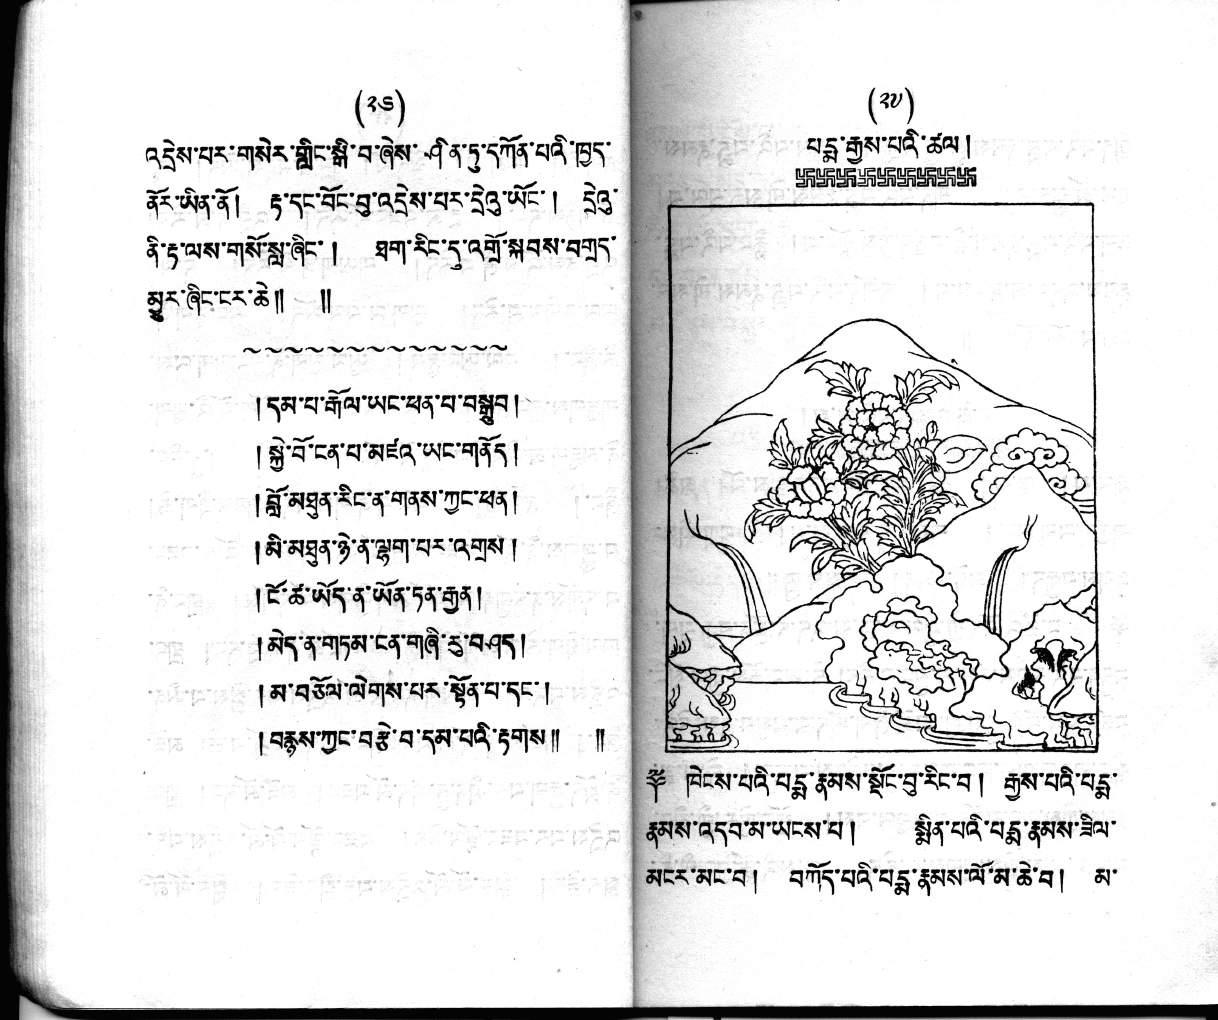 (༢༤)
འདྲེས་པར་གསེར་གླིང་སྐྱི་བ་ཞེས་ཤིན་ཏུ་དཀོན་པའི་ཁྱད་
ནོར་ཡིན་ནོ།  རྟ་དང་བོང་བུ་འདྲེས་པར་དྲེའུ་ཡོང་།  དྲེའུ་
ནི་རྟ་ལས་གསོ་སླ་ཞིང་།  ཐག་རིང་དུ་འགྲོ་སྐབས་བགྲད་
མྱུར་ཞིང་ངར་ཆེ༎  ༎
།དམ་པ་རྒོལ་ཡང་ཕན་པ་བསྒྲུབ།
།སྐྱེ་བོ་ངན་པ་མཛའ་ཡང་གནོད།
།བློ་མཐུན་རིང་ན་གནས་ཀྱང་ཕན།
།མི་མཐུན་ཉེ་ན་ལྷག་པར་འགྲས།
།ངོ་ཚ་ཡོད་ན་ཡོན་ཏན་རྒྱན།
།མེད་ན་གཏམ་ངན་གཞི་རུ་བཤད།
།མ་བཅོལ་ལེགས་པར་སྟོན་པ་དང་།
།བརྙས་ཀྱང་བརྩེ་བ་དམ་པའི་རྟགས༎  ༎
(༢༥)
པདྨ་རྒྱས་པའི་ཚལ།
༈  ཁེངས་པའི་པདྨ་རྣམས་སྡོང་བུ་རིང་བ།  རྒྱས་པའི་པདྨ་
རྣམས་འདབ་མ་ཡངས་པ།  སྨིན་པའི་པདྨ་རྣམས་ཟིལ་
མངར་མང་བ།  བཀོད་པའི་པདྨ་རྣམས་ལོ་མ་ཆེ་བ།  མ་